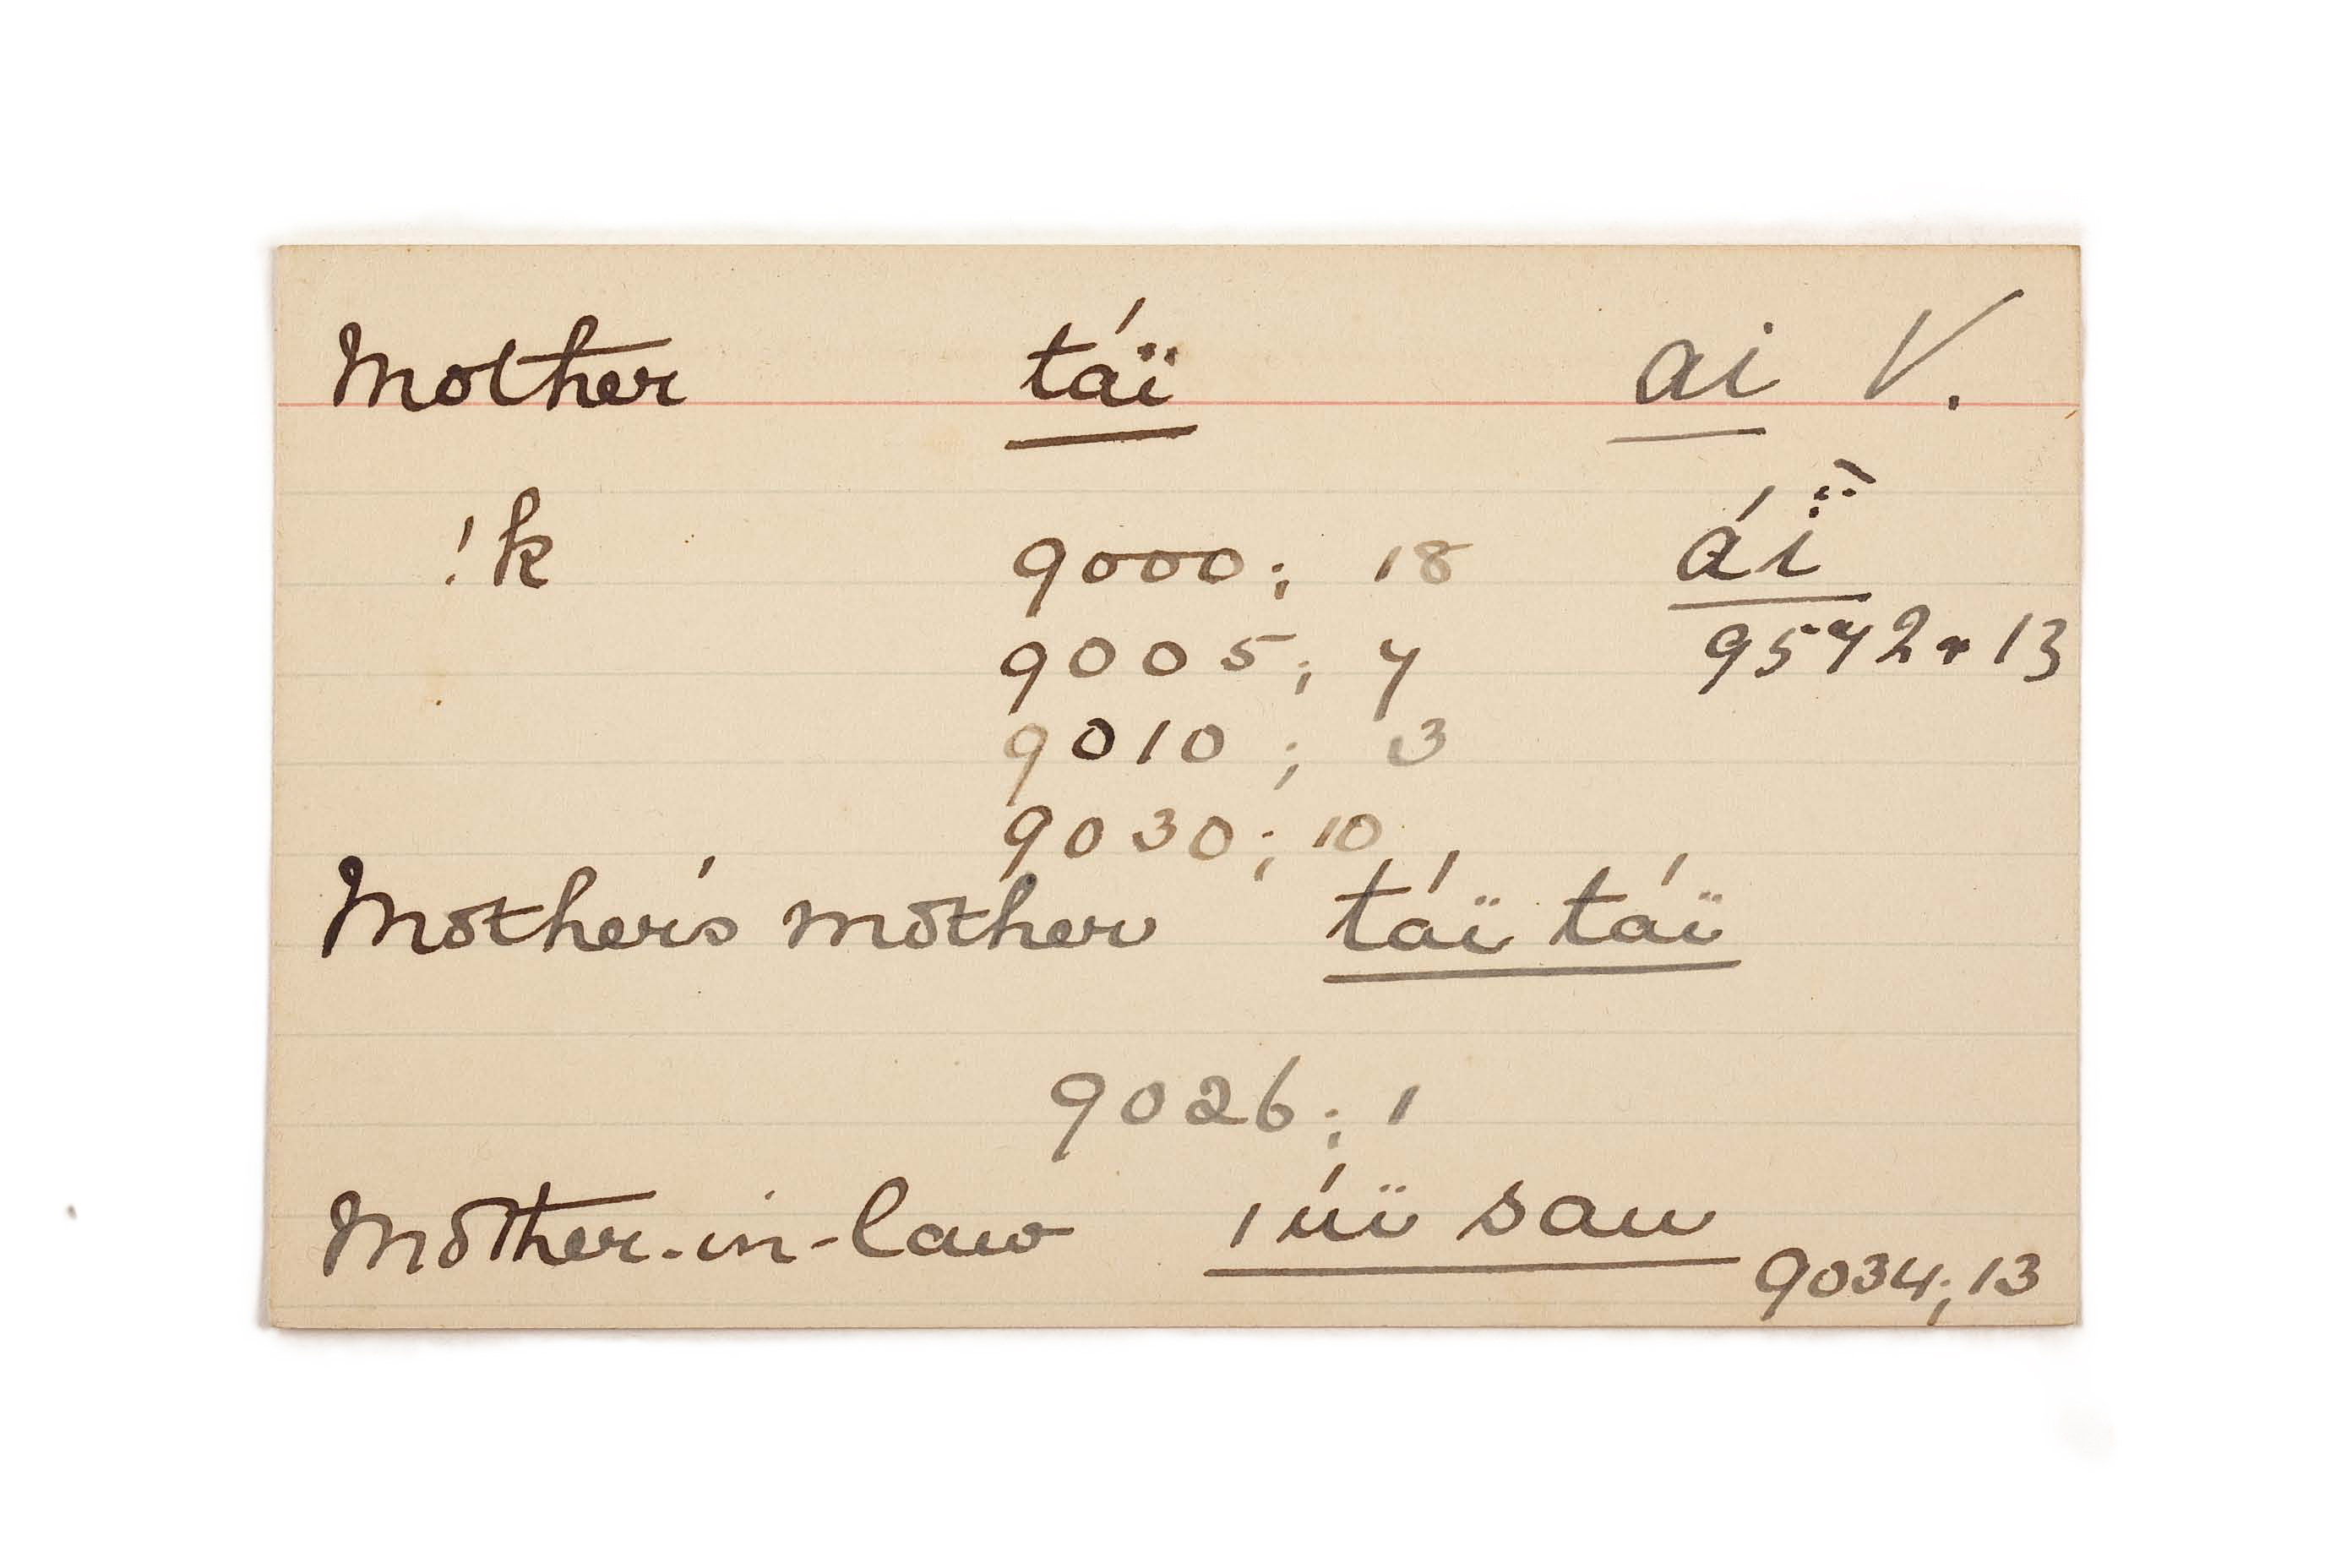 Mother táï ai V.
!k 9000; 18 áï̈
9005; 7 9572, 13
9010; 3
9030; 10
Mother's mother táï táï
9026; 1
Mother-in-law ǀúï sau
9034; 13